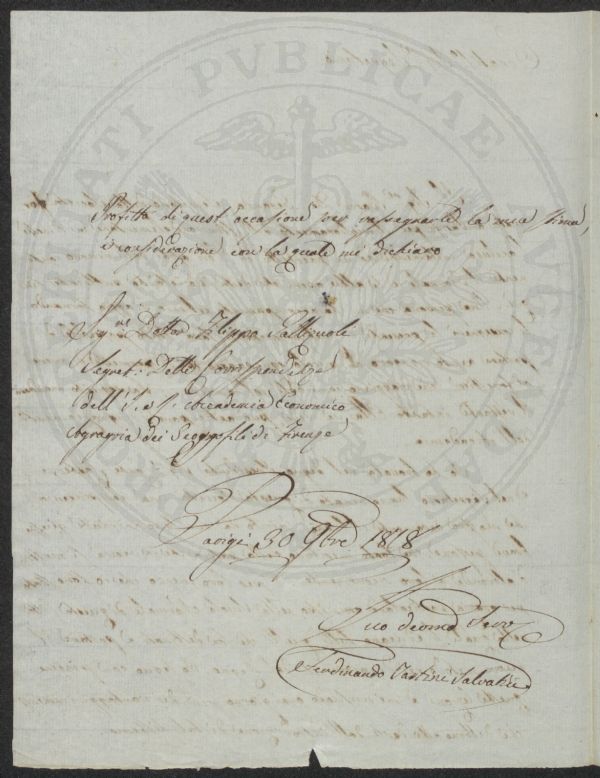 Profitto di quest'occasione per rassegnarle la mia stima,
e considerazione con la quale mi dichiaro
Sig.re Dottor Filippo Gallizioli
Segret.o Delle Corrispondenze
dell' I. e R. Accademia Economico
Agraria dei Georgofili di Firenze
Parigi 30 9bre 1818
Suo devmo Serv
Ferdinando Tartini Salvatici
PROSPERITATI PVBLICAE AVGENDAE